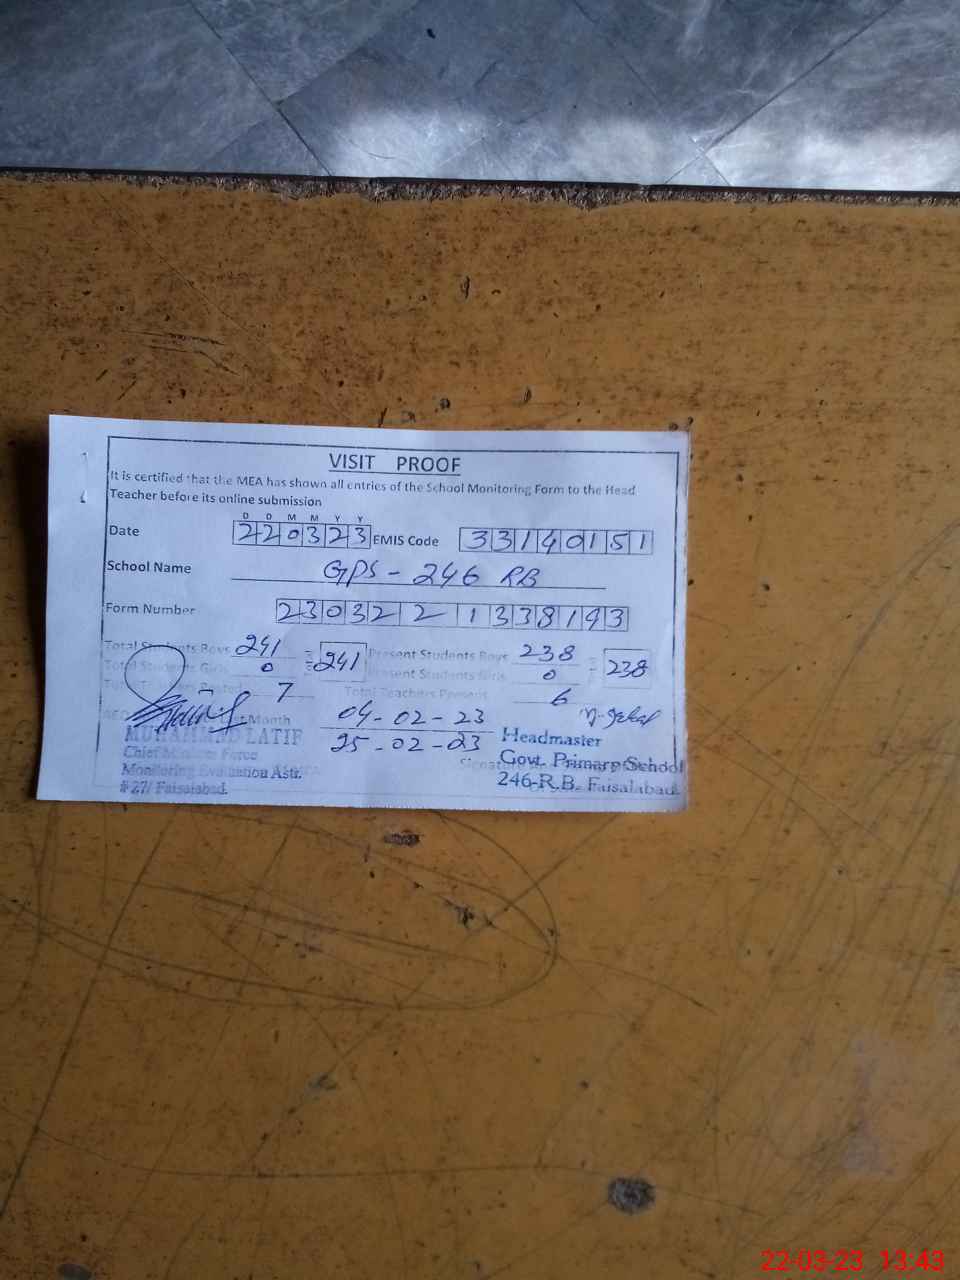 VISIT PROOF
It is certified that the MEA has shown all entries of the School Monitoring Form to the Head
Teacher before its online submission
D D M M Y Y
Date 220323 EMIS Code 33140151
School Name GPS - 246 RB
Form Number 230322 1338193
Total Students Boys 241 241 Present Students Boys 238 238
Total Students Girls 0 Present Students Girls 0
7 Total Teachers Present 6
Month 04-02-23
25-02-23
MUHAMMAD LATIF Headmaster
Chief Minister Force Govt. Primary School
Monitoring Evaluation Astt. 246-R.B. Faisalabad
# 27/ Faisalabad.
22-03-23 13:43